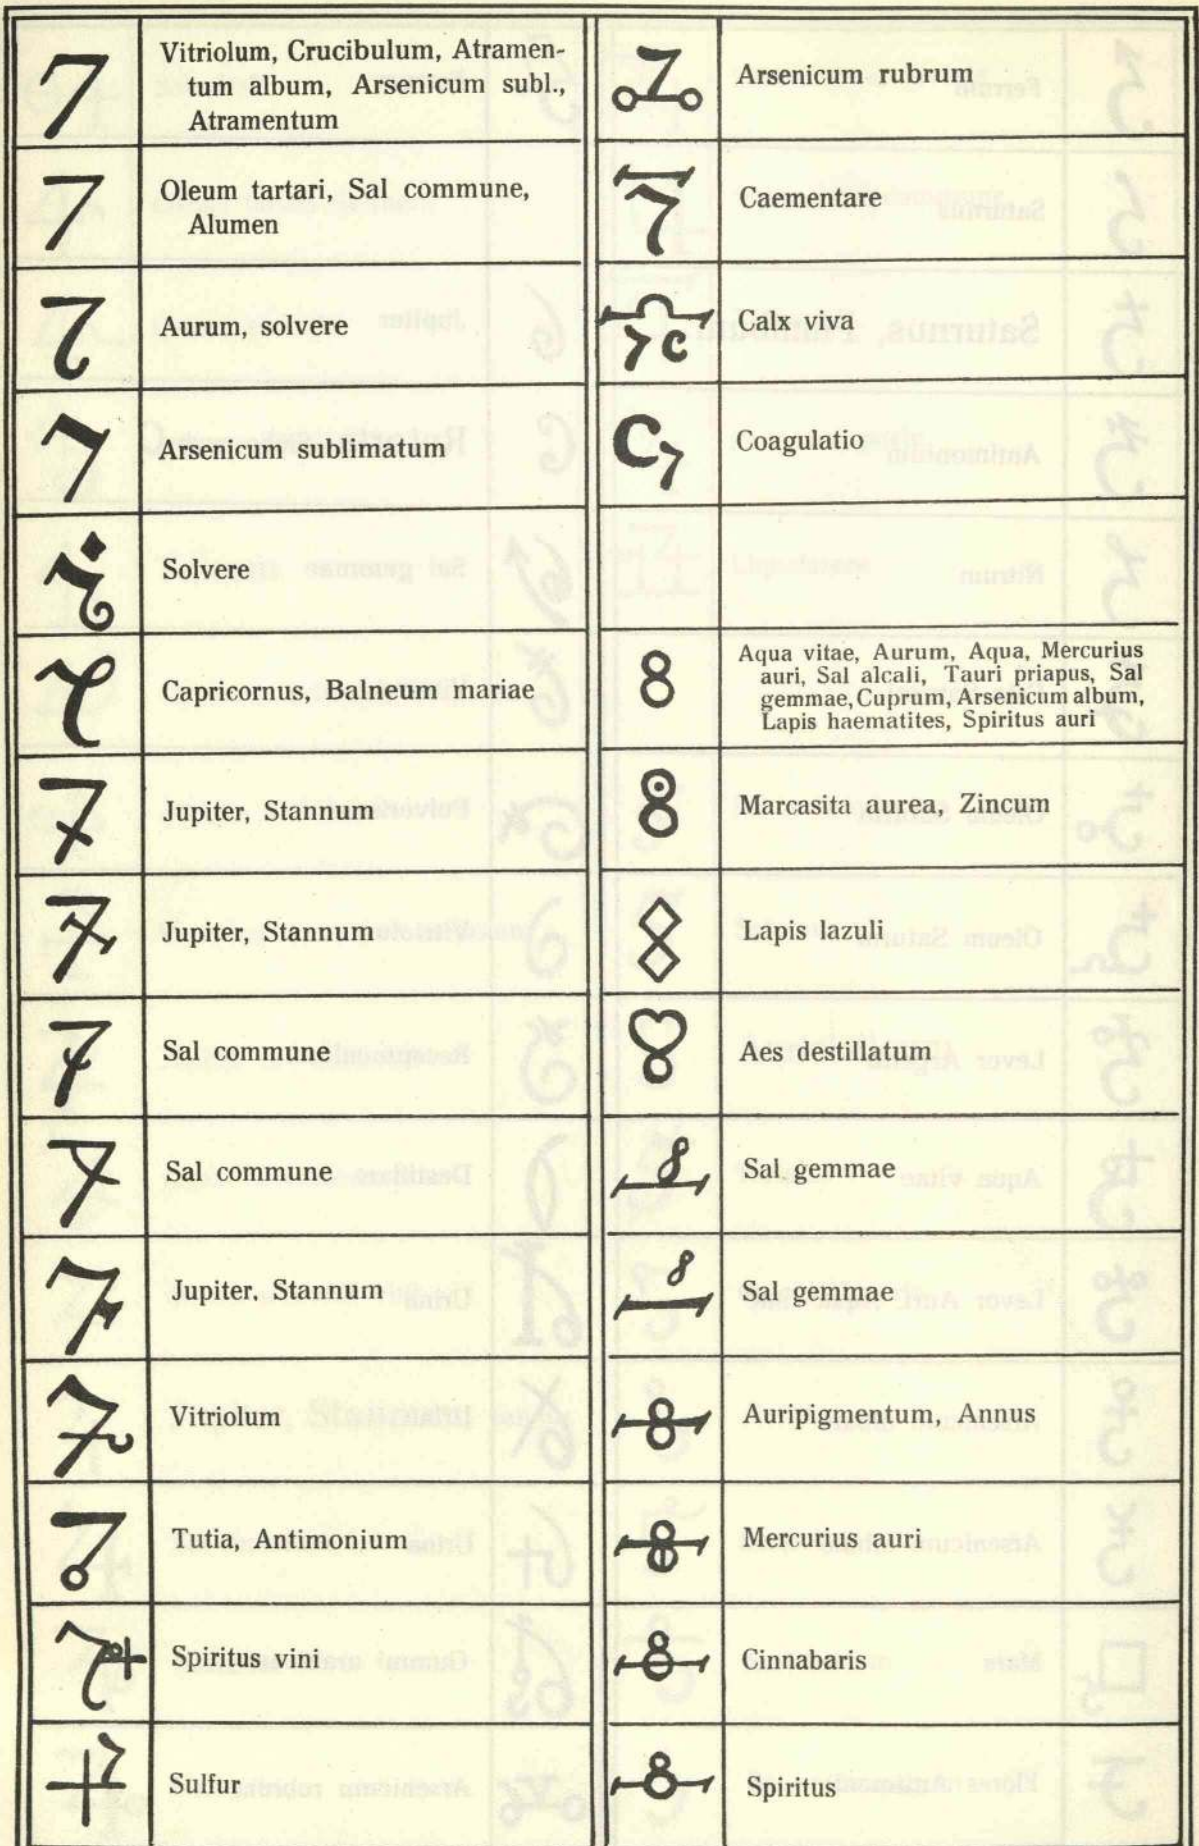 Vitriolum, Crucibulum, Atramen-
tum album, Arsenicum subl.,
Atramentum
Oleum tartari, Sal commune,
Alumen
Aurum, solvere
Arsenicum sublimatum
Solvere
Capricornus, Balneum mariae
Jupiter, Stannum
Jupiter, Stannum
Sal commune
Sal commune
Jupiter. Stannum
Vitriolum
Tutia, Antimonium
Spiritus vini
Sulfur
Arsenicum rubrum
Caementare
Calx viva
Coagulatio
Aqua vitae, Aurum, Aqua, Mercurius
auri, Sal alcali, Tauri priapus, Sal
gemmae, Cuprum, Arsenicum album,
Lapis haematites, Spiritus auri
Marcasita aurea, Zincum
Lapis lazuli
Aes destillatum
Sal gemmae
Sal gemmae
Auripigmentum, Annus
Mercurius auri
Cinnabaris
Spiritus